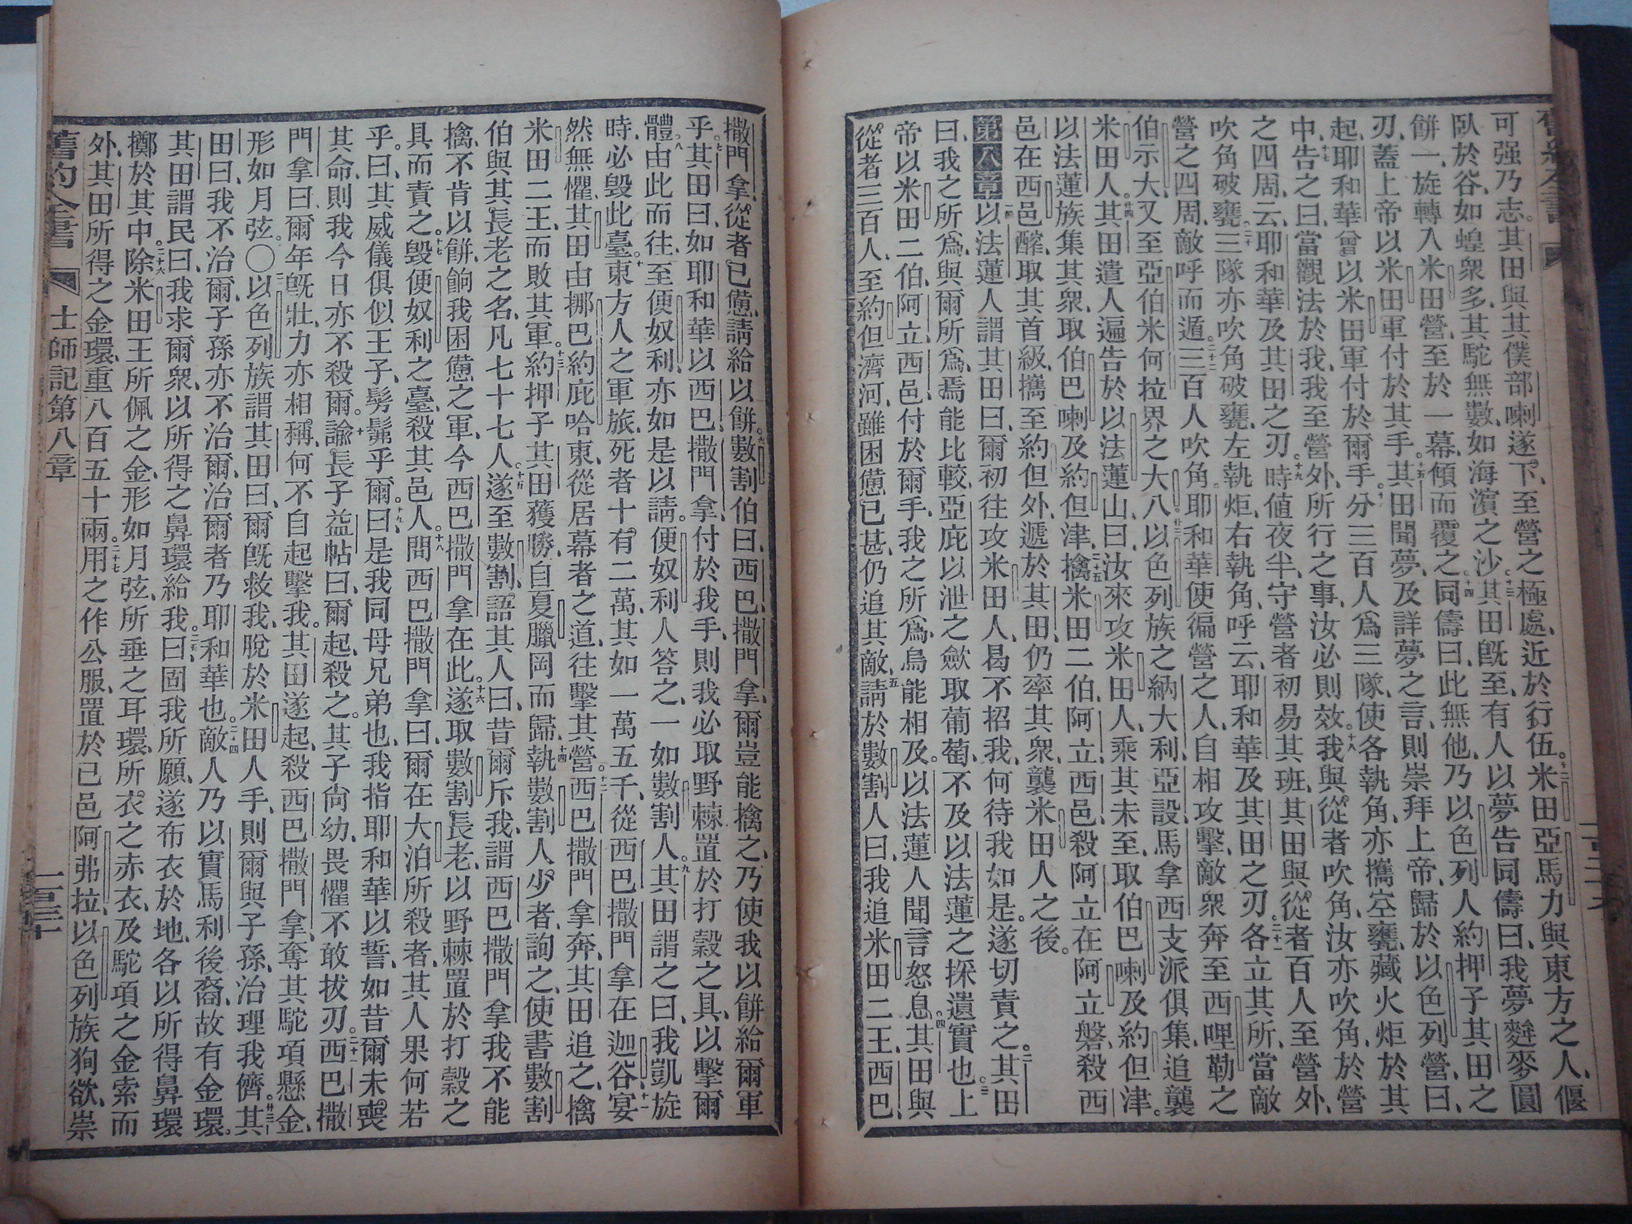 可强乃志其田與其僕部喇遂下至營之極處近於行伍米田亞馬力與東方之人偃
臥於谷如蝗衆多其駝無數如海濱之沙其田旣至有人以夢告同儔曰我夢麰麥圓
餅一旋轉入米田營至於一幕傾而覆之同儔曰此無他乃以色列人約押子其田之
刃蓋上帝以米田軍付於其手其田聞夢及詳夢之言則崇拜上帝歸於以色列營曰
起耶和華曾以米田軍付於爾手分三百人爲三隊使各執角亦攜空甕藏火炬於其
中告之曰當觀法於我我至營外所行之事汝必則效我與從者吹角汝亦吹角於營
之四周云耶和華及其田之刃時値夜半守營者初易其班其田與從者百人至營外
吹角破甕三隊亦吹角破甕左執炬右執角呼云耶和華及其田之刃各立其所當敵
營之四周敵呼而遁三百人吹角耶和華使徧營之人自相攻擊敵衆奔至西哩勒之
伯示大又至亞伯米何拉界之大八以色列族之納大利亞設馬拿西支派俱集追襲
米田人其田遣人遍告於以法蓮山曰汝來攻米田人乘其未至取伯巴喇及約但津
以法蓮族集其衆取伯巴喇及約但津擒米田二伯阿立西邑殺阿立在阿立磐殺西
邑在西邑醡取其首級攜至約但外遞於其田仍率其衆襲米田人之後
第八章以法蓮人謂其田曰爾初往攻米田人曷不招我何待我如是遂切責之其田
曰我之所爲與爾所爲焉能比較亞庇以泄之歛取葡萄不及以法蓮之採遺實也上
帝以米田二伯阿立西邑付於爾手我之所爲烏能相及以法蓮人聞言怒息其田與
從者三百人至約但濟河雖困憊已甚仍追其敵請於數割人曰我追米田二王西巴
撒門拿從者已憊請給以餅數割伯曰西巴撒門拿爾豈能擒之乃使我以餅給爾軍
乎其田曰如耶和華以西巴撒門拿付於我手則我必取野棘置於打穀之具以擊爾
體由此而往至便奴利亦如是以請便奴利人答之一如數割人其田謂之曰我凱旋
時必毀此臺東方人之軍旅死者十有二萬其如一萬五千從西巴撒門拿在迦谷宴
然無懼其田由挪巴約庇哈東從居幕者之道往擊其營西巴撒門拿奔其田追之擒
米田二王而敗其軍約押子其田獲勝自夏臘岡而歸執數割人少者詢之使書數割
伯與其長老之名凡七十七人遂至數割語其人曰昔爾斥我謂西巴撒門拿我不能
擒不肯以餅餉我困憊之軍今西巴撒門拿在此遂取數割長老以野棘置於打穀之
具而責之毀便奴利之臺殺其邑人問西巴撒門拿曰爾在大泊所殺者其人果何若
乎曰其威儀俱似王子髣髴乎爾曰是我同母兄弟也我指耶和華以誓如昔爾未喪
其命則我今日亦不殺爾諭長子益帖曰爾起殺之其子尙幼畏懼不敢拔刃西巴撒
門拿曰爾年旣壯力亦相稱何不自起擊我其田遂起殺西巴撒門拿奪其駝項懸金
形如月弦〇以色列族謂其田曰爾旣救我脫於米田人手則爾與子孫治理我儕其
田曰我不治爾子孫亦不治爾治爾者乃耶和華也敵人乃以實馬利後裔故有金環
其田謂民曰我求爾衆以所得之鼻環給我曰固我所願遂布衣於地各以所得鼻環
擲於其中除米田王所佩之金形如月弦所垂之耳環所衣之赤衣及駝項之金索而
外其田所得之金環重八百五十兩用之作公服置於己邑阿弗拉以色列族狥欲崇
舊約全書 士師記第八章 一百三十